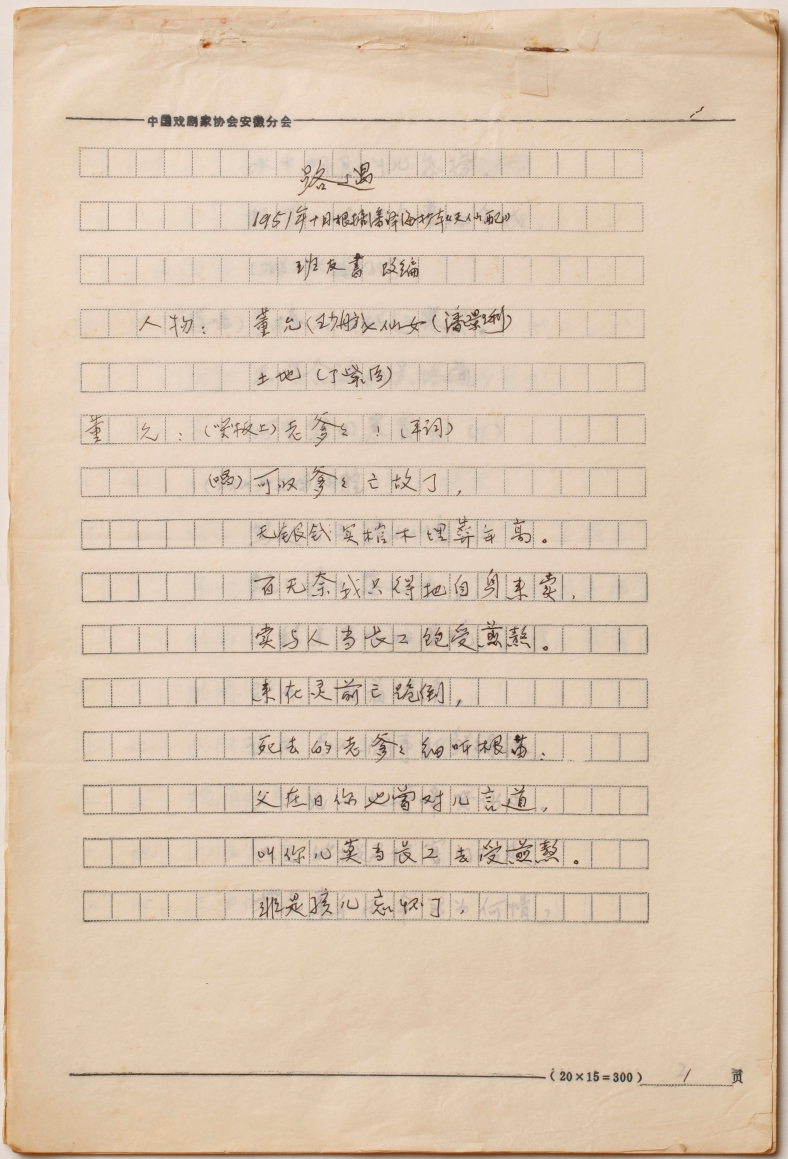 中国戏剧家协会安徽分会
路遇
1951年十月根据潘泽海抄本《天仙配》
班友书 改编
人物：董允（王少舫）七仙女（潘璟琍）
土地（丁紫臣）
董允：（哭板上）老爹々！（哭词）
（唱）可叹爹々亡故了，
无银钱买棺木埋葬年高。
百无奈我只得把自身来卖，
卖与人当长工饱受煎熬。
来在灵前忙跪倒，
死去的老爹々细听根苗：
父在日你也曾对儿言道，
叫你儿莫当长工去受煎熬。
非是孩儿忘怀了，
（20×15=300） 1 页